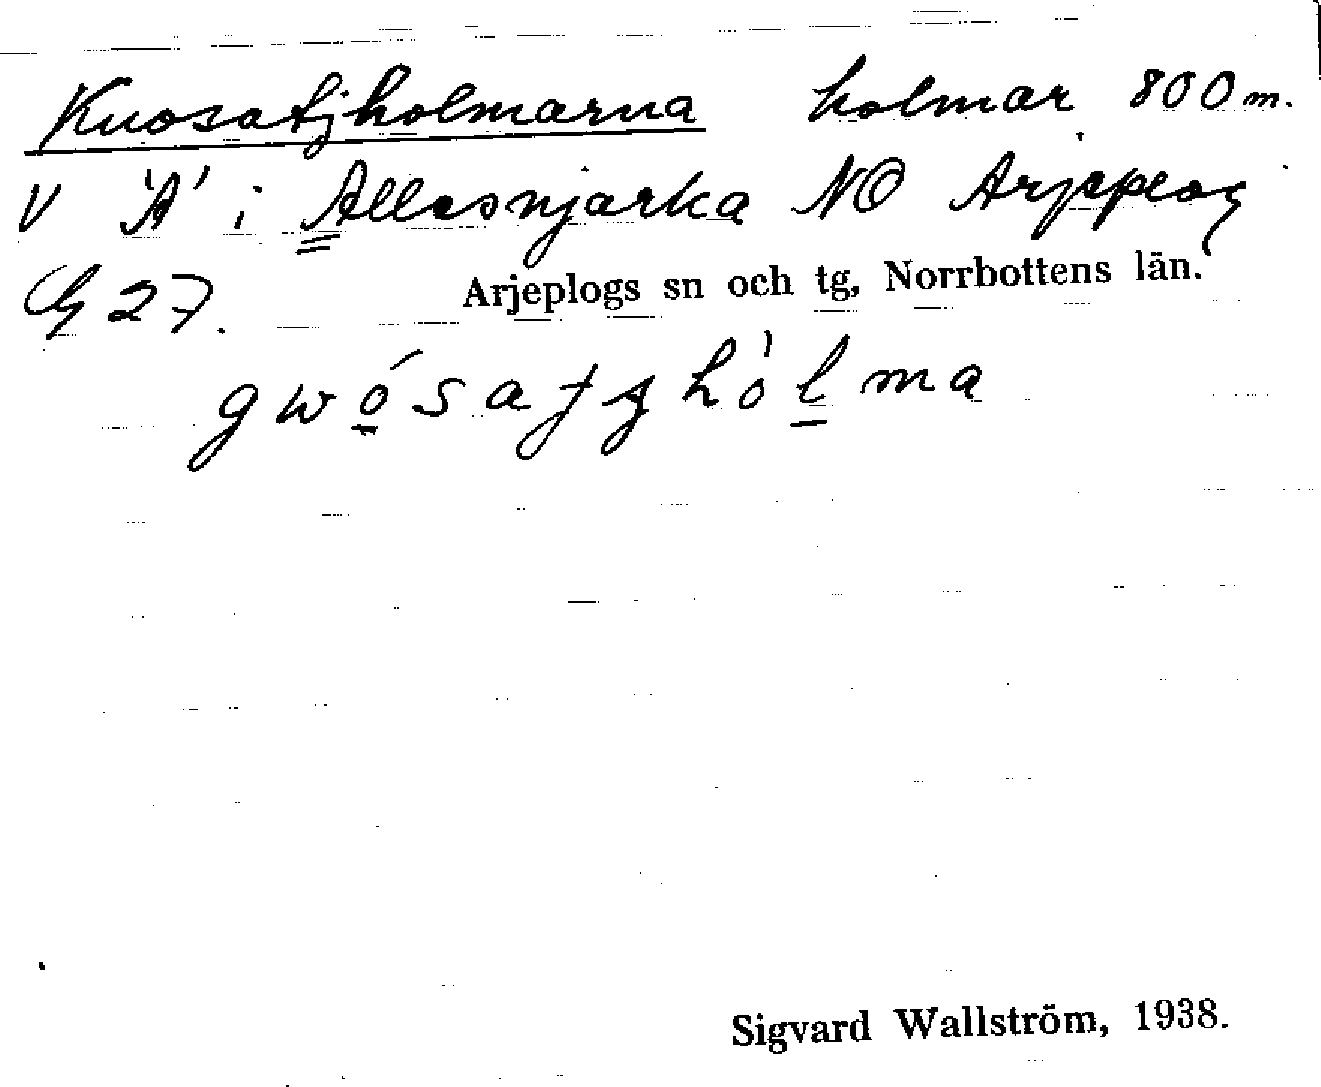 Kuosatjholmarna holmar 800 m.
V 'A' i Allesnjarka NO Arjeplog
G 27.
Arjeplogs sn och tg, Norrbottens län.
Sigvard Wallström, 1938.